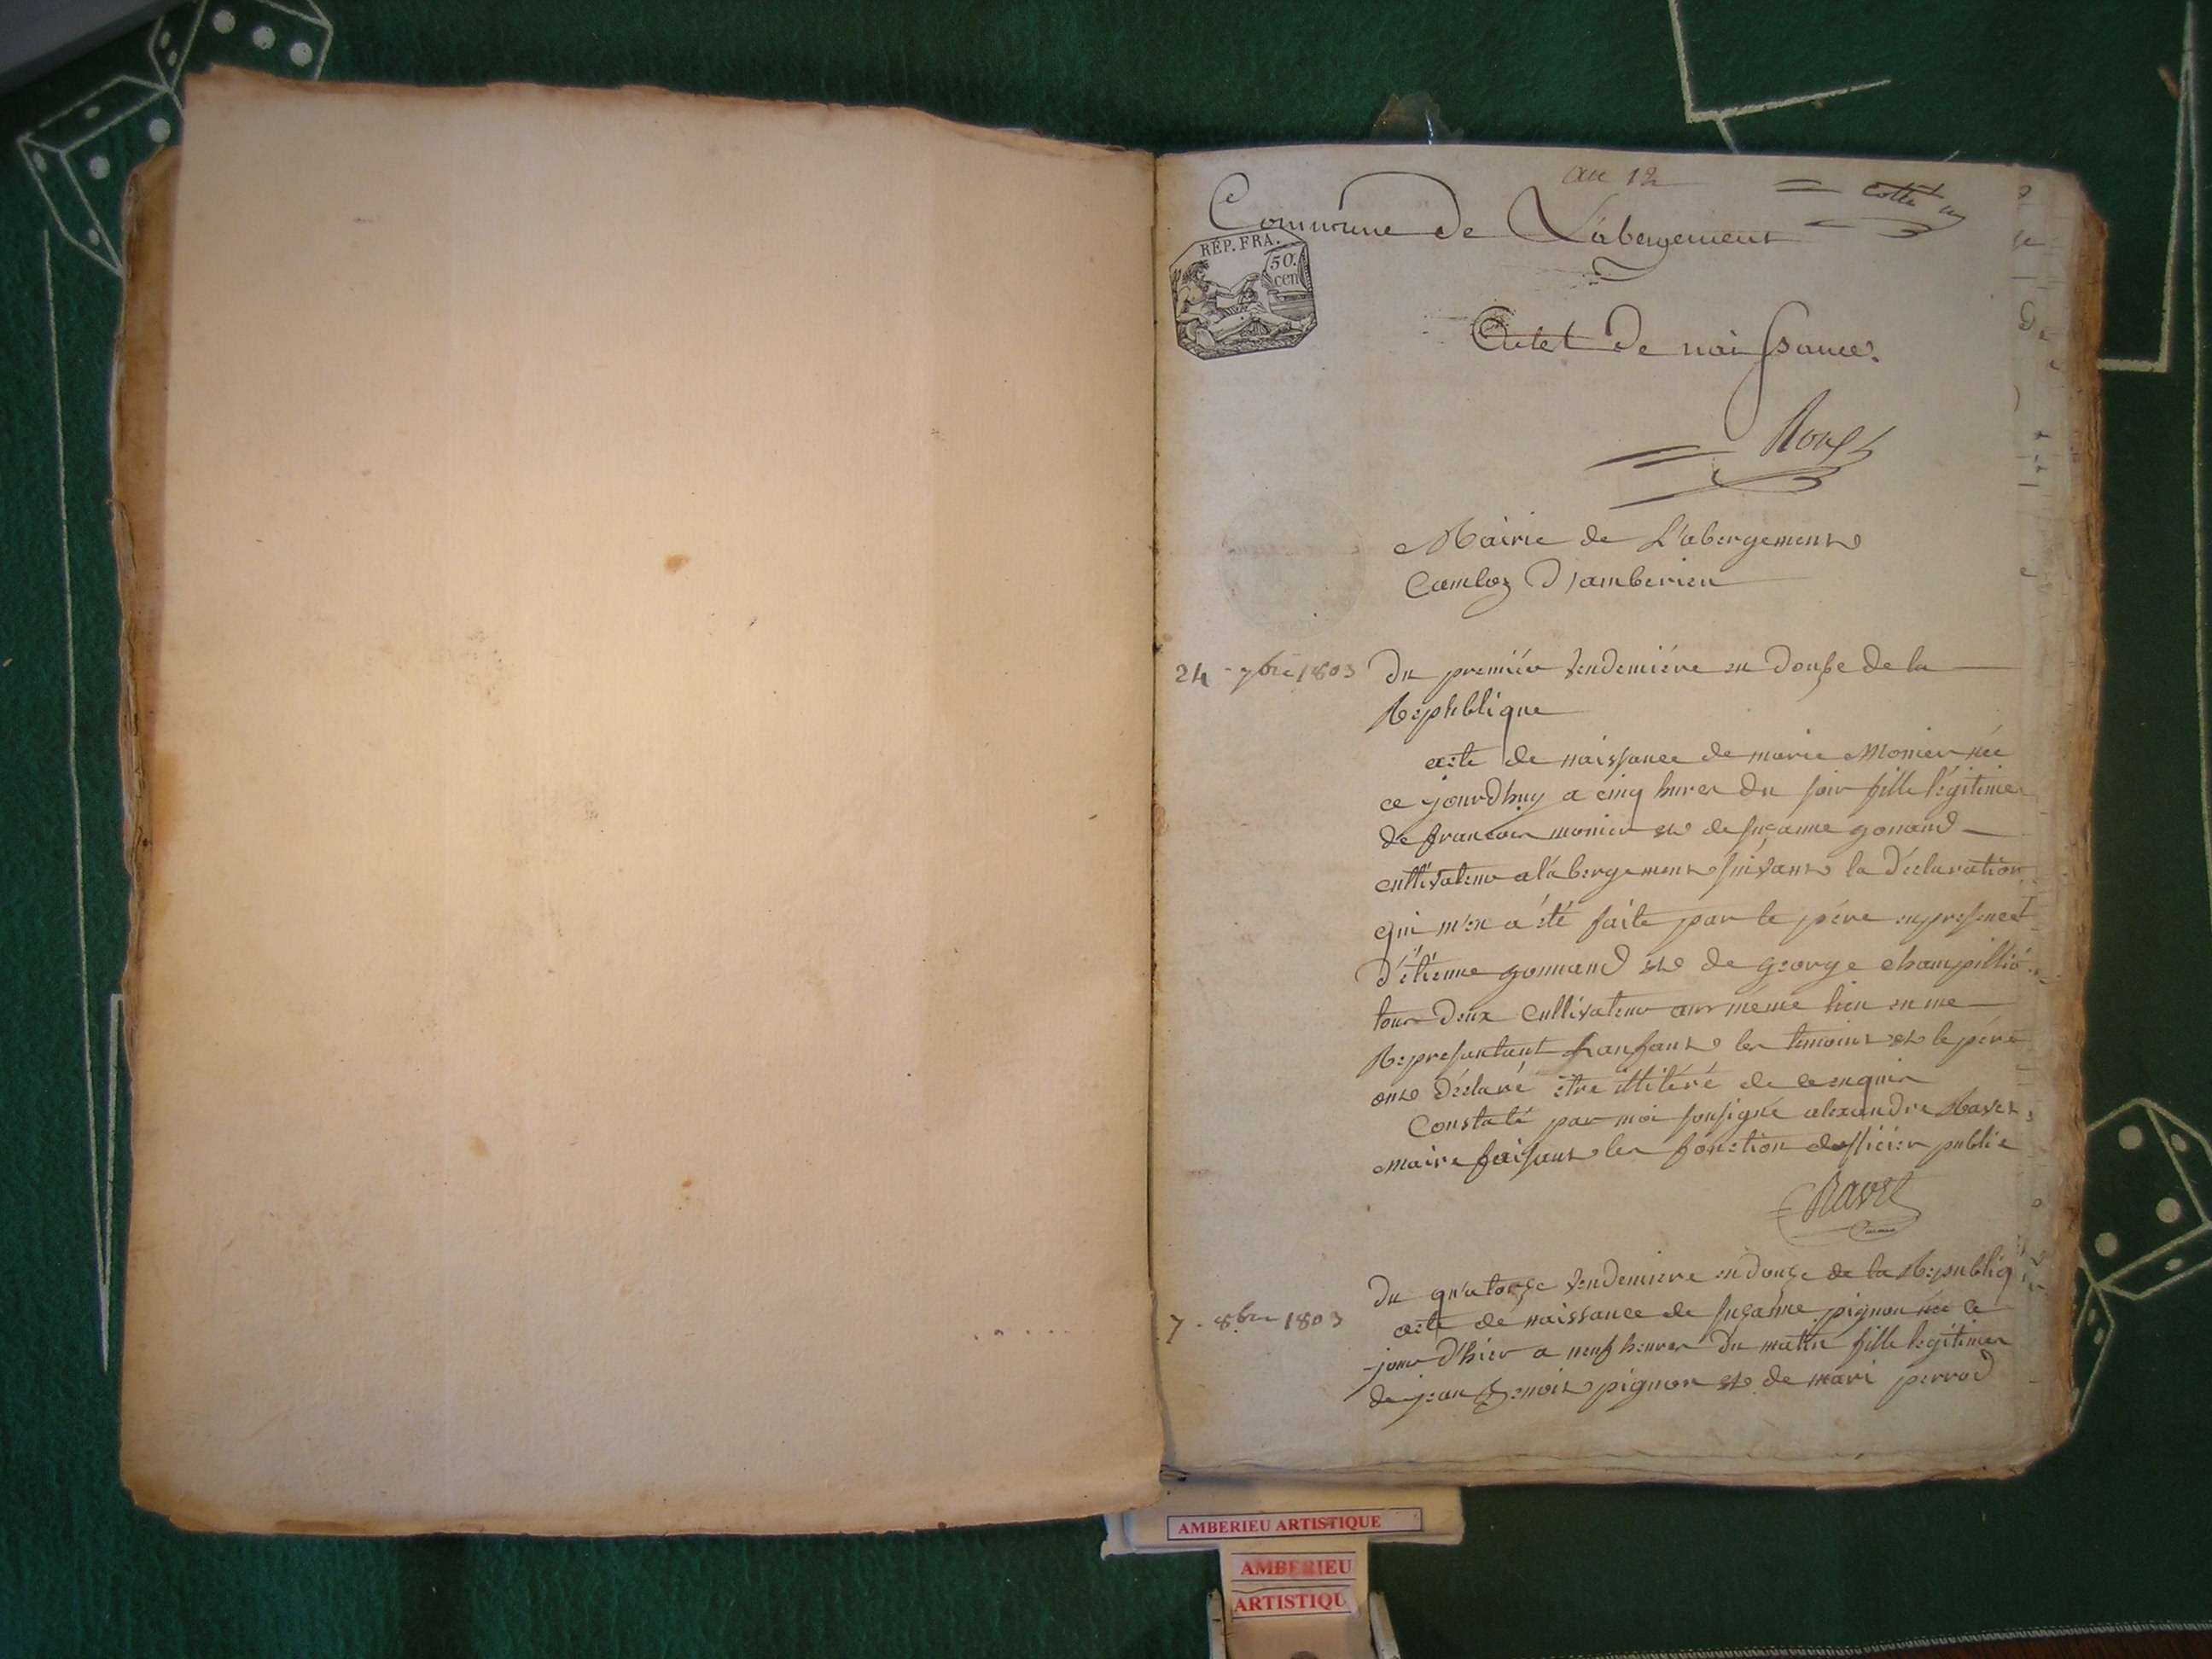 an 12
Commune de Labergement
RÉP. FRA.
50.
cen
Actes de naissance
Mairie de L'abergement
Canton d'amberieu
24 - 7bre 1803
Du premiér vendemiére an Douse de la
Republique
acte de naissance de marie Monier née
ce jourdhuy a cinq hures du soir fille légitime
de francois monier et de susanne gonand
cultivateur a labergement suivant la déclaration
qui m'en a été faite par le pére en presence
d'étienne gonnand et de george champillió
tous deux cultivateur au méme lieu en me
Represantant l'anfant les temoins et le pére
ont déclaré étre illitéré de ce enquis
Constaté par moi sousigné alexandre Ravet
maire faisant les fonction dofficier public
Ravet
7 - 8bre 1803
Du quatorze vendemiere an douze de la Republiq
acte de naissance de susanne pignon née ce
jour d'hier a neuf heures du mattin fille legitime
de jean Benoit pignon et de mari perrod
AMBERIEU ARTISTIQUE
AMBERIEU
ARTISTIQU